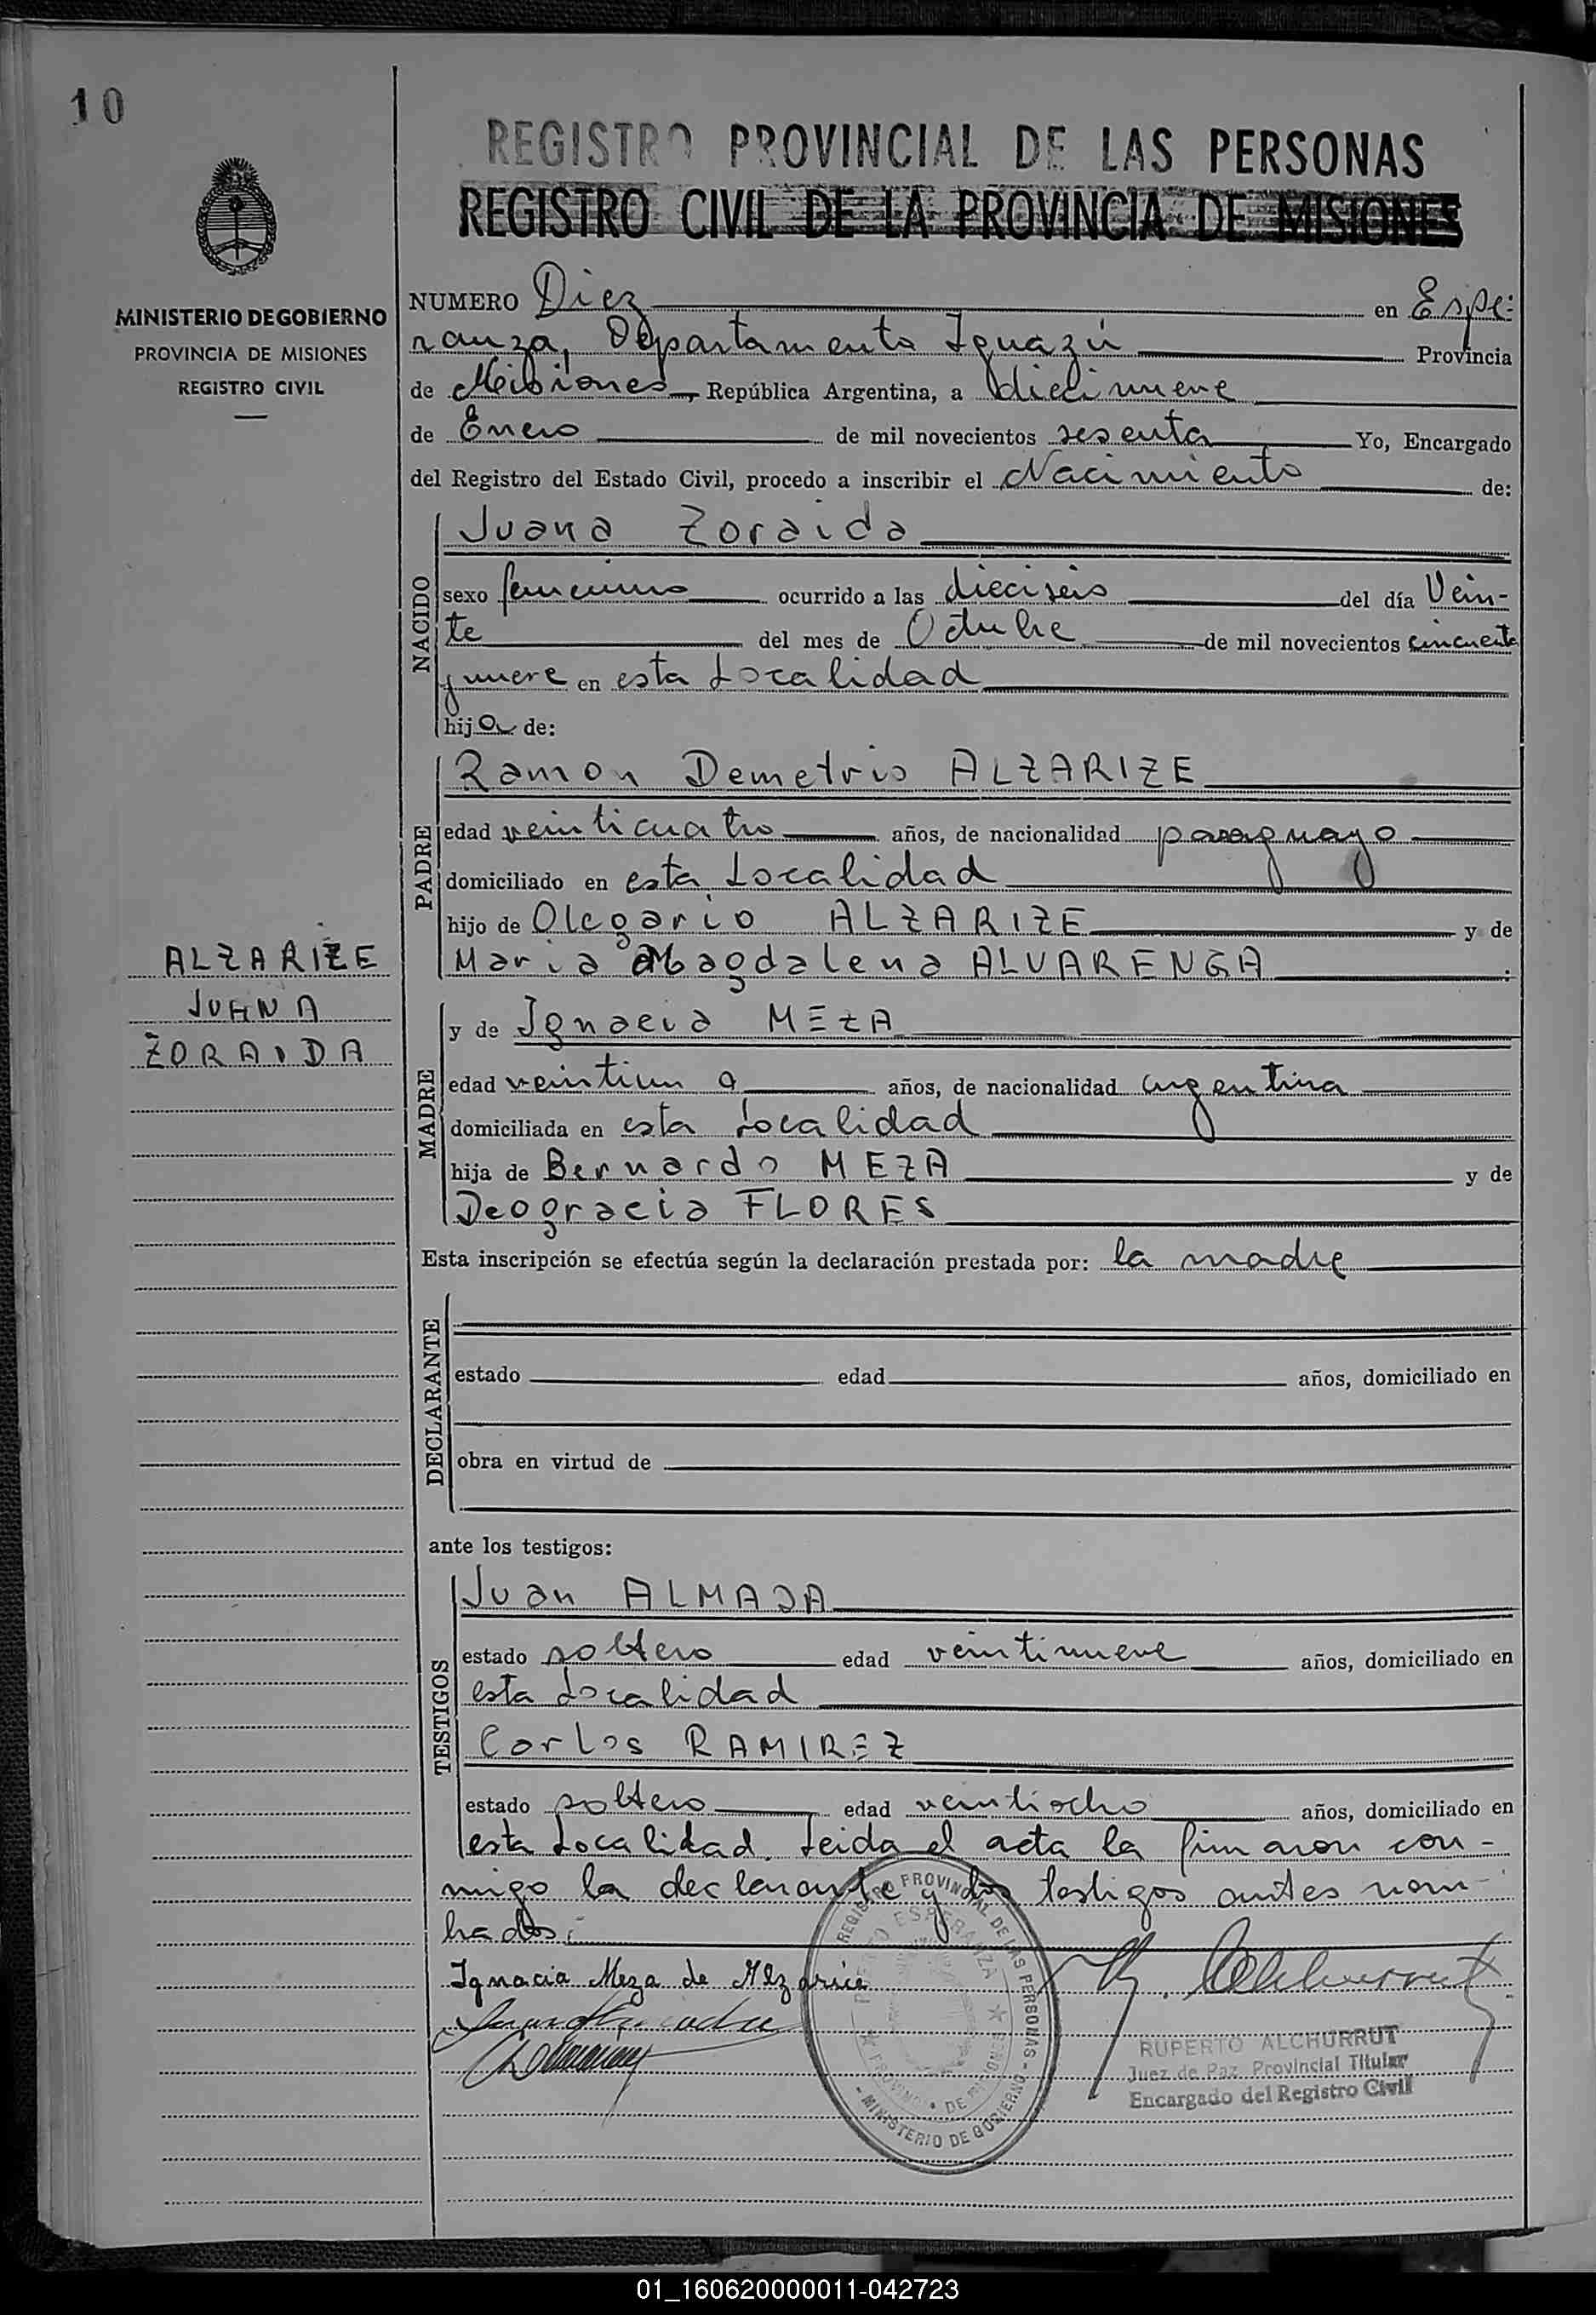 10
REGISTRO PROVINCIAL DE LAS PERSONAS
REGISTRO CIVIL DE LA PROVINCIA DE MISIONES
MINISTERIO DE GOBIERNO
PROVINCIA DE MISIONES
REGISTRO CIVIL
NUMERO Diez en Espe-
ranza, Departamento Iguazú Provincia
de Misiones, República Argentina, a diecinueve
de Enero de mil novecientos sesenta Yo, Encargado
del Registro del Estado Civil, procedo a inscribir el Nacimiento de:
NACIDO
Juana Zoraida
sexo femenino ocurrido a las dieciseis del día Vein-
te del mes de Octubre de mil novecientos cincuenta
y nueve en esta Localidad
hija de:
PADRE
Ramon Demetrio ALZARIZE
edad veinticuatro años, de nacionalidad paraguayo
domiciliado en esta Localidad
hijo de Olegario ALZARIZE y de
Maria Magdalena ALVARENGA
ALZARIZE
JUANA
ZORAIDA
MADRE
y de Ignacia MEZA
edad veintiun a años, de nacionalidad argentina
domiciliada en esta Localidad
hija de Bernardo MEZA y de
Deogracia FLORES
Esta inscripción se efectúa según la declaración prestada por: la madre
DECLARANTE
estado edad años, domiciliado en
obra en virtud de
ante los testigos:
TESTIGOS
Juan ALMADA
estado soltero edad veintinueve años, domiciliado en
esta Localidad
Carlos RAMIREZ
estado soltero edad veintiocho años, domiciliado en
esta Localidad. Leida el acta la firmaron con-
migo la declarante y los testigos antes nom-
brados:
Ignacia Meza de Alzarice
REGISTRO PROVINCIAL DE LAS PERSONAS - MINISTERIO DE GOBIERNO -
PUERTO ESPERANZA
PROVINCIA DE MISIONES
RUPERTO ALCHURRUT
Juez de Paz Provincial Titular
Encargado del Registro Civil
01_160620000011-042723